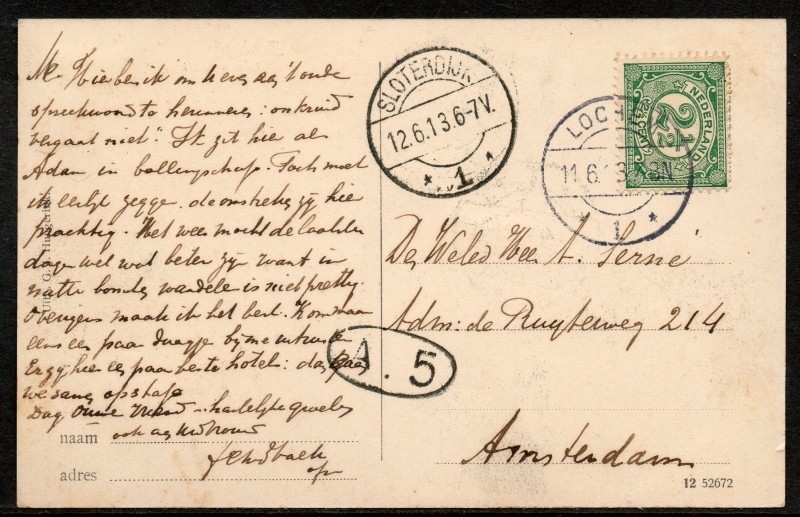 SLOTERDIJK
12.6.13.6-7V.
* 1 *
LOCHEM
11.6.13. N
* 1 *
NEDERLAND
2½
De Weled Heer A. Serné
Adm: de Ruyterweg 214
Amsterdam
A. 5
Hier ben ik om u eens aan 't oude
spreekwoord te herinneren: onkruid
vergaat niet". Ik zit hier als
Adam in ballingschap. Toch moet
ik eerlijk zeggen de omstreken zijn hier
prachtig. Het weer mocht de laatste
dagen wel wat beter zijn want in
natte wandelen is niet prettig.
Overigens maak ik het best. Kom maar
eens een paar daagjes bij me
Er zijn hier een paar beste hotels: dan gaan
we samen op stap
Dag Oude Vriend hartelijk gegroet
ook aan
naam
adres
12 52672